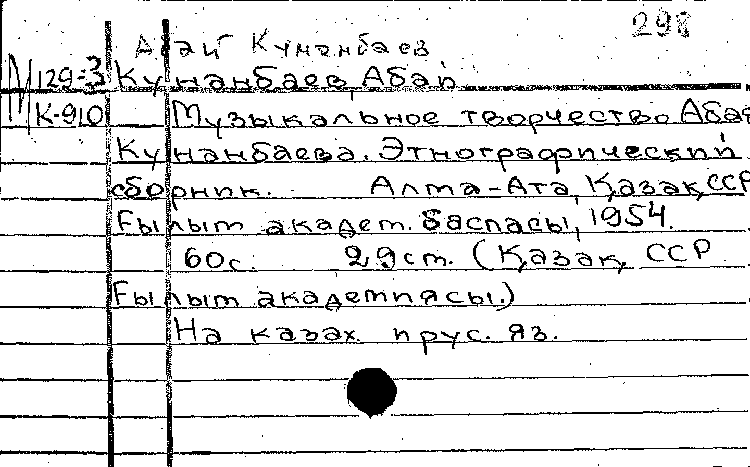 298
Абай Кунанбаев
М 129-3 Кунанбаев, Абай
К-910 Музыкальное творчество Абая
Кунанбаева. Этнографический
сборник. Алма-Ата, Қазақ ССР
Ғылым академ. баспасы, 1954.
60с. 29см. (Қазақ ССР
Ғылым академиясы.)
На казах. и рус. яз.